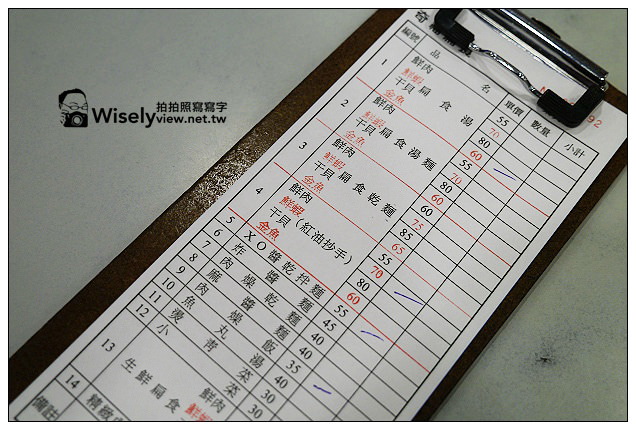 奇
編號 品名 單價 數量 小計
92
1 鮮肉 55
鮮蝦 70
干貝 扁食湯 80
金魚 60
2 鮮肉 55
鮮蝦 70
干貝 扁食湯麵 80
金魚 60
3 鮮肉 60
鮮蝦 75
干貝 扁食乾麵 85
金魚 65
4 鮮肉 55
鮮蝦 70
干貝 (紅油抄手) 80
金魚 60
5 XO醬乾拌麵 55
6 炸醬乾麵 45
7 肉燥乾麵 40
8 麻醬麵 40
9 肉燥飯 35
10 魚丸湯 40
11 燙青菜
12 小菜 30
13 生鮮扁食 鮮肉
鮮蝦
14 精緻
備註
Wisely 拍拍照寫寫字
view.net.tw